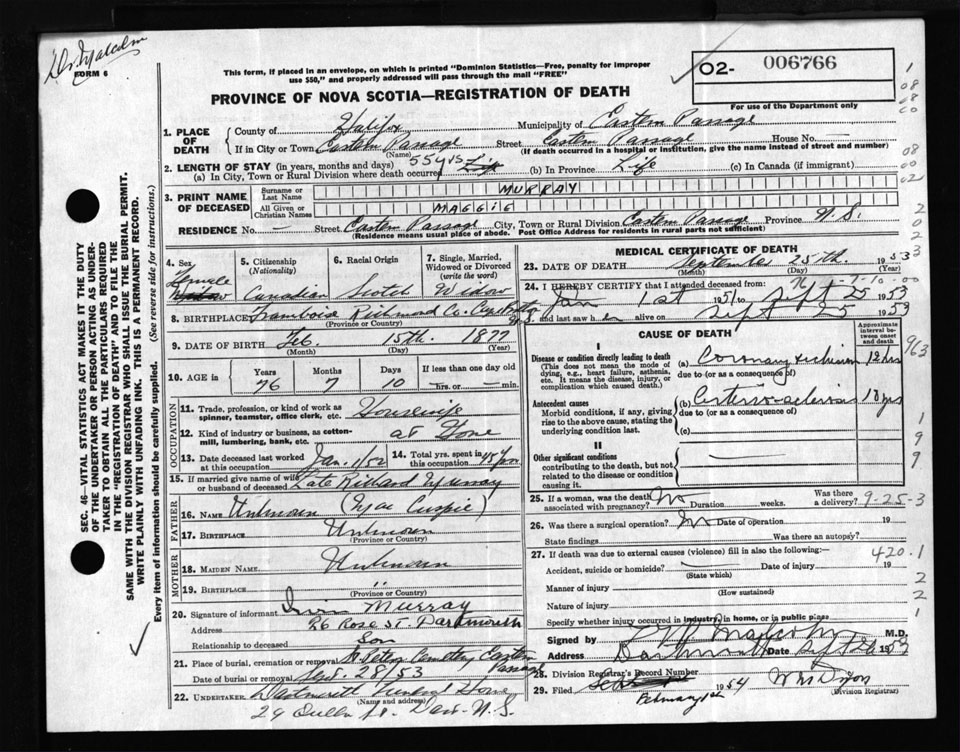 Dr. Malcolm
FORM 6
This form, if placed in an envelope, on which is printed "Dominion Statistics—Free, penalty for improper
use $50," and properly addressed will pass through the mail "FREE"
02- 006766
For use of the Department only
PROVINCE OF NOVA SCOTIA—REGISTRATION OF DEATH
1. PLACE OF DEATH
County of Halifax Municipality of Eastern Passage
If in City or Town Eastern Passage Street Eastern Passage House No. —
(Name) (If death occurred in a hospital or institution, give the name instead of street and number)
2. LENGTH OF STAY (in years, months and days)
(a) In City, Town or Rural Division where death occurred 55 yrs Life (b) In Province Life (c) In Canada (if immigrant)
3. PRINT NAME OF DECEASED
Surname or Last Name MURRAY
All Given or Christian Names MAGGIE
RESIDENCE No. — Street Eastern Passage City, Town or Rural Division Eastern Passage Province N.S.
(Residence means usual place of abode. Post Office Address for residents in rural parts not sufficient)
4. Sex Female
5. Citizenship (Nationality) Canadian
6. Racial Origin Scotch
7. Single, Married, Widowed or Divorced (write the word) Widow
8. BIRTHPLACE Framboise Richmond Co. N.S.
(Province or Country)
9. DATE OF BIRTH Feb. 15th. 1877
(Month) (Day) (Year)
10. AGE in Years Months Days If less than one day old
76 7 10 hrs. or min.
OCCUPATION
11. Trade, profession, or kind of work as spinner, teamster, office clerk, etc. Housewife
12. Kind of industry or business, as cotton-mill, lumbering, bank, etc. at Home
13. Date deceased last worked at this occupation Jan. 1/52
14. Total yrs. spent in this occupation
15. If married give name of wife or husband of deceased Late Richard Murray
FATHER
16. NAME Unknown
17. BIRTHPLACE Unknown
(Province or Country)
MOTHER
18. MAIDEN NAME Unknown
19. BIRTHPLACE "
(Province or Country)
20. Signature of informant Murray
Address 26 Rose St. Dartmouth
Relationship to deceased Son
21. Place of burial, cremation or removal St Peters Cemetery Eastern Passage
Date of burial or removal Sept. 28/53
22. UNDERTAKER Dartmouth Funeral Home
(Name and address)
29 Queen St. Dart. N.S.
MEDICAL CERTIFICATE OF DEATH
23. DATE OF DEATH September 25th. 1953
(Month) (Day) (Year)
24. I HEREBY CERTIFY that I attended deceased from:
Jan 1st 1951 to Sept 25 1953
and last saw her alive on Sept 25 1953
CAUSE OF DEATH
Approximate interval between onset and death
I
Disease or condition directly leading to death
(This does not mean the mode of dying, e.g., heart failure, asthenia, etc. It means the disease, injury, or complication which caused death.)
(a) Coronary occlusion 12 hrs
due to (or as a consequence of)
Antecedent causes
Morbid conditions, if any, giving rise to the above cause, stating the underlying condition last.
(b) Arterio-sclerosis 10 yrs
due to (or as a consequence of)
(c)
II
Other significant conditions
contributing to the death, but not related to the disease or condition causing it.
25. If a woman, was the death associated with pregnancy? No Duration weeks. Was there a delivery?
9-25-3
26. Was there a surgical operation? No Date of operation 19
State findings Was there an autopsy?
27. If death was due to external causes (violence) fill in also the following:
Accident, suicide or homicide? Date of injury 19
(State which)
420.1
Manner of injury
(How sustained)
Nature of injury
Specify whether injury occurred in industry, in home, or in public place
Signed by Malcolm M.D.
Address Dartmouth Date Sept 26 1953
28. Division Registrar's Record Number
29. Filed February 1954 Wm Dixon
(Division Registrar)
SEC. 46—VITAL STATISTICS ACT MAKES IT THE DUTY
OF THE UNDERTAKER OR PERSON ACTING AS UNDER-
TAKER TO OBTAIN ALL THE PARTICULARS REQUIRED
IN THE "REGISTRATION OF DEATH" AND TO FILE THE
SAME WITH THE DIVISION REGISTRAR WHO SHALL ISSUE THE BURIAL PERMIT.
WRITE PLAINLY WITH UNFADING INK. THIS IS A PERMANENT RECORD.
Every item of information should be carefully supplied. (See reverse side for instructions.)